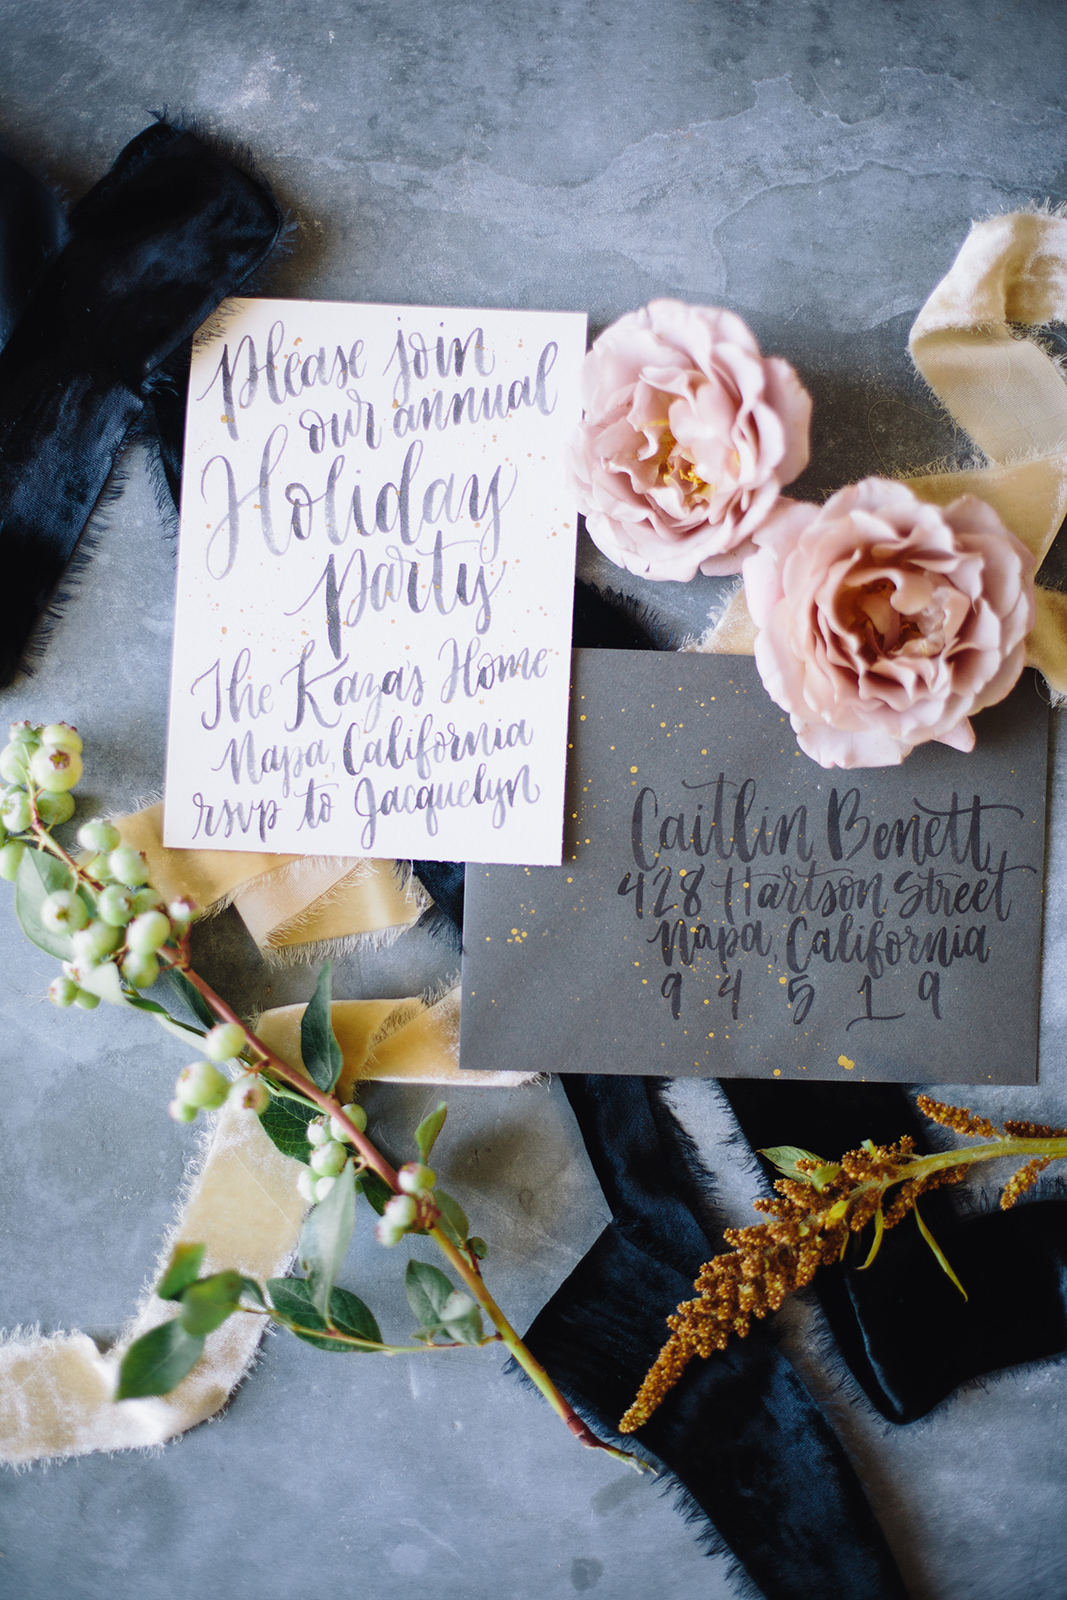 Please join
our annual
Holiday
party
The Kaza's Home
Napa, California
rsvp to Jacquelyn
Caitlin Benett
428 Hartson Street
Napa, California
9 4 5 1 9